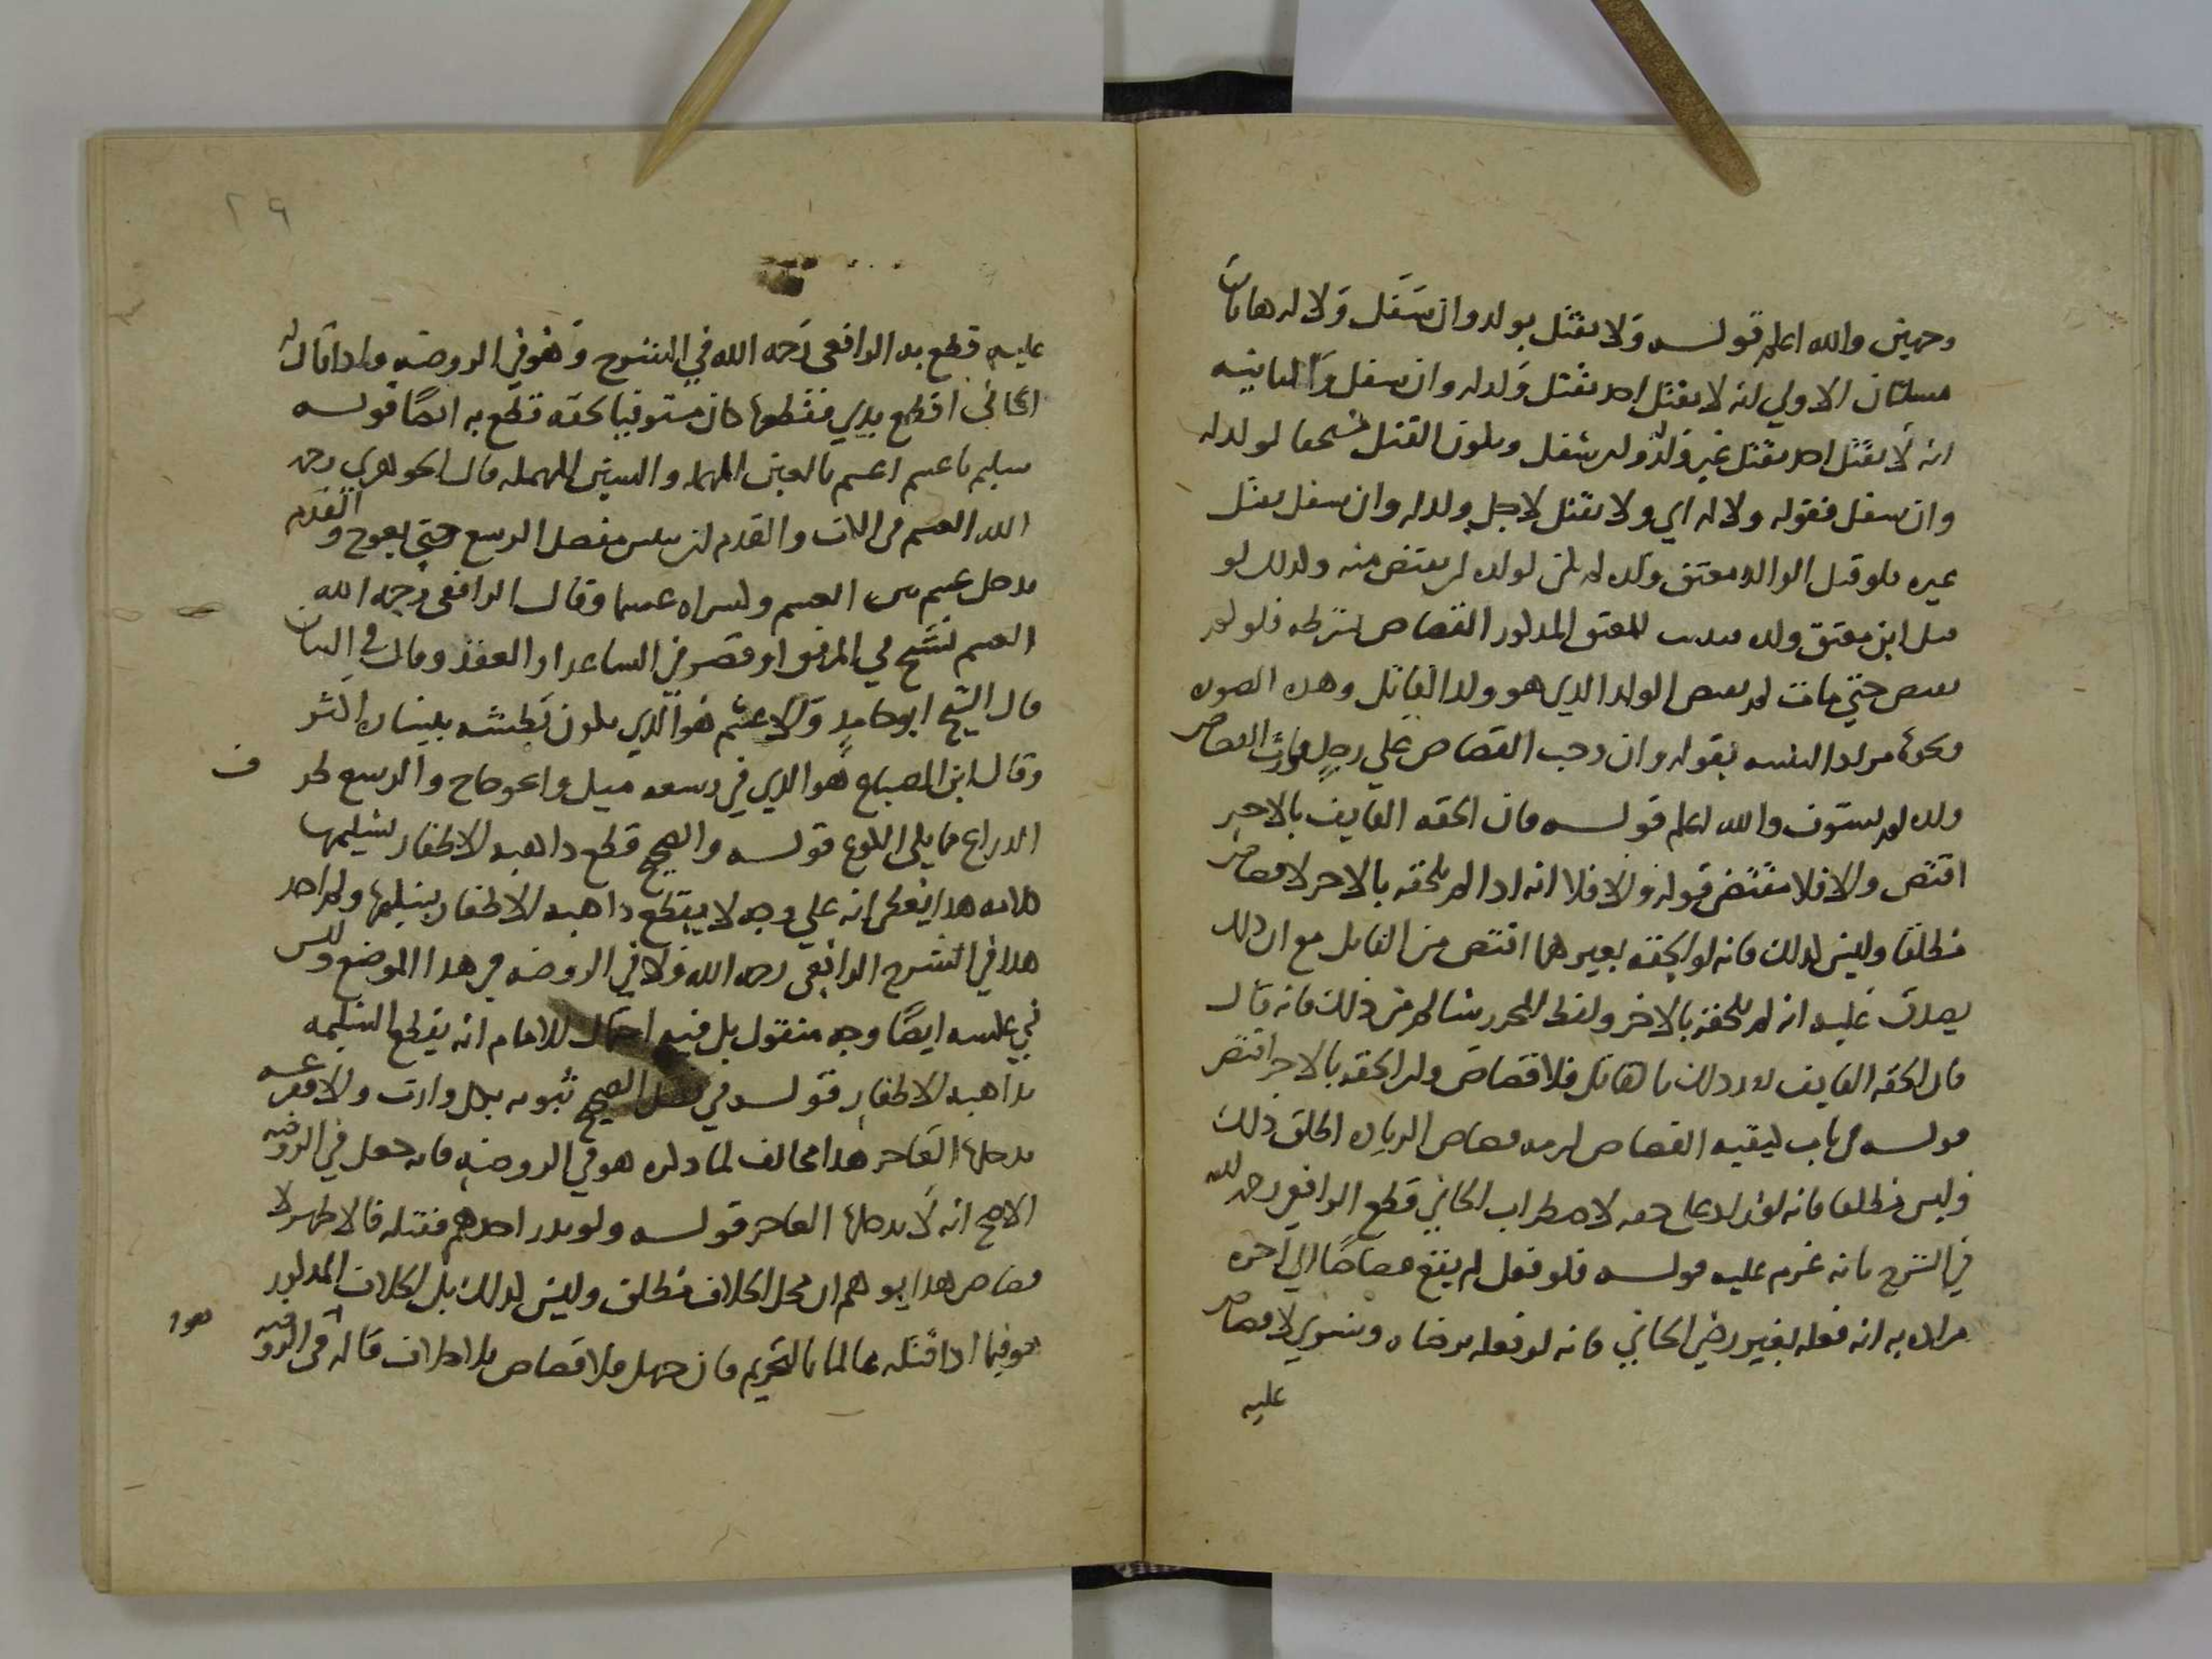 وجهين والله اعلم قوله ولا يقتل بولد وان سفل ولا له هاتان
مسلتان الاولي انه لا يقتل احد بقتل ولده وان سفل والثانيه
انه لا يقتل احد بقتل غير ولده ولم سفل ويكون القتل مستحقا لولده
وان سفل فقوله ولا له اي ولا يقتل لاجل ولده وان سفل بقتل
غيره فلو قتل الوالد معتق ولده لم يكن لولده ان يقتص منه وكذلك لو
قتل ابن معتق ولده للمعتق المذكور القصاص بشرطه فلو لم
يقتص حتي مات لم يقتص الولد الذي هو ولد القاتل وهذه الصوره
ونحوها مراد التنبيه بقوله وان وجب القصاص علي رجل فورث القصاص
ولده لم يستوف والله اعلم قوله فان الحقه القايف بالاخر
اقتص والا فلا مقتضي قوله والا فلا انه اذا لم يلحقه بالاخر لا قصاص
مطلقا وليس كذلك فانه لو الحقه بغيرهما اقتص من القاتل مع ان ذلك
يصدق عليه انه لم يلحقه بالاخر ولفظ المحرر سالم من ذلك فانه قال
فان الحقه القايف بالقاتل فلا قصاص وان الحقه بالاخر اقتص
قوله في باب كيفيه القصاص لزمه قصاص الزياده اطلق ذلك
وليس مطلقا فانه لو زاد علي حقه لاضطراب الجاني قطع الرافعي رحمه الله
في الشرح بانه غرم عليه قوله فلو فعل لم يقع قصاصا الي اخره
مراده به انه فعله بغير رضي الجاني فانه لو فعله برضاه وسري لا قصاص
عليه
٢٩
عليه قطع به الرافعي رحمه الله في الشرح وهو في الروضه واذا قال له
الجاني اقطع يدي فقطعها كان مستوفيا بحقه قطع به ايضا قوله
سليم باعسم اعسم بالعين المهمله والسين المهمله قال الجوهري رحمه
الله العسم في الكف والقدم ان ييبس مفصل الرسغ حتي يعوج والقدم
رجل عسم بين العسم وامراه عسما وقال الرافعي رحمه الله
العسم تشنج في المرفق او قصر في الساعد او العضد وقال في البيان
قال الشيخ ابو حامد والاعسم هو الذي يكون بطشه بيساره اكثر
وقال ابن الصباغ هو الذي في رسغه ميل واعوجاج والرسغ طرف
الذراع مما يلي الكوع قوله والصحيح قطع ذاهبة الاظفار بسليمها
كلامه هذا يفهم انه علي وجه لا يقطع ذاهبه الاظفار بسليمها ولم اجد
هذا في الشرح الرافعي رحمه الله ولا في الروضه في هذا الموضع وليس
في عكسه ايضا وجه منقول بل فيه احتمال للامام انه يقطع السليمه
بذاهبه الاظفار قوله في فصل الصحيح ثبوته بكل وارث والا فقرعه
يدخلها العاجز هذا مخالف لما ذكره هو في الروضه فانه جعل في الروضه
الاصح انه لا يدخلها العاجز قوله ولو بدر احدهم فقتله فالاظهر لا
قصاص هذا يوهم ان محل الخلاف مطلق وليس كذلك بل الخلاف المذكور
هو فيما اذا قتله عالما بالتحريم فان جهل فلا قصاص بلا خلاف قاله في الروضه